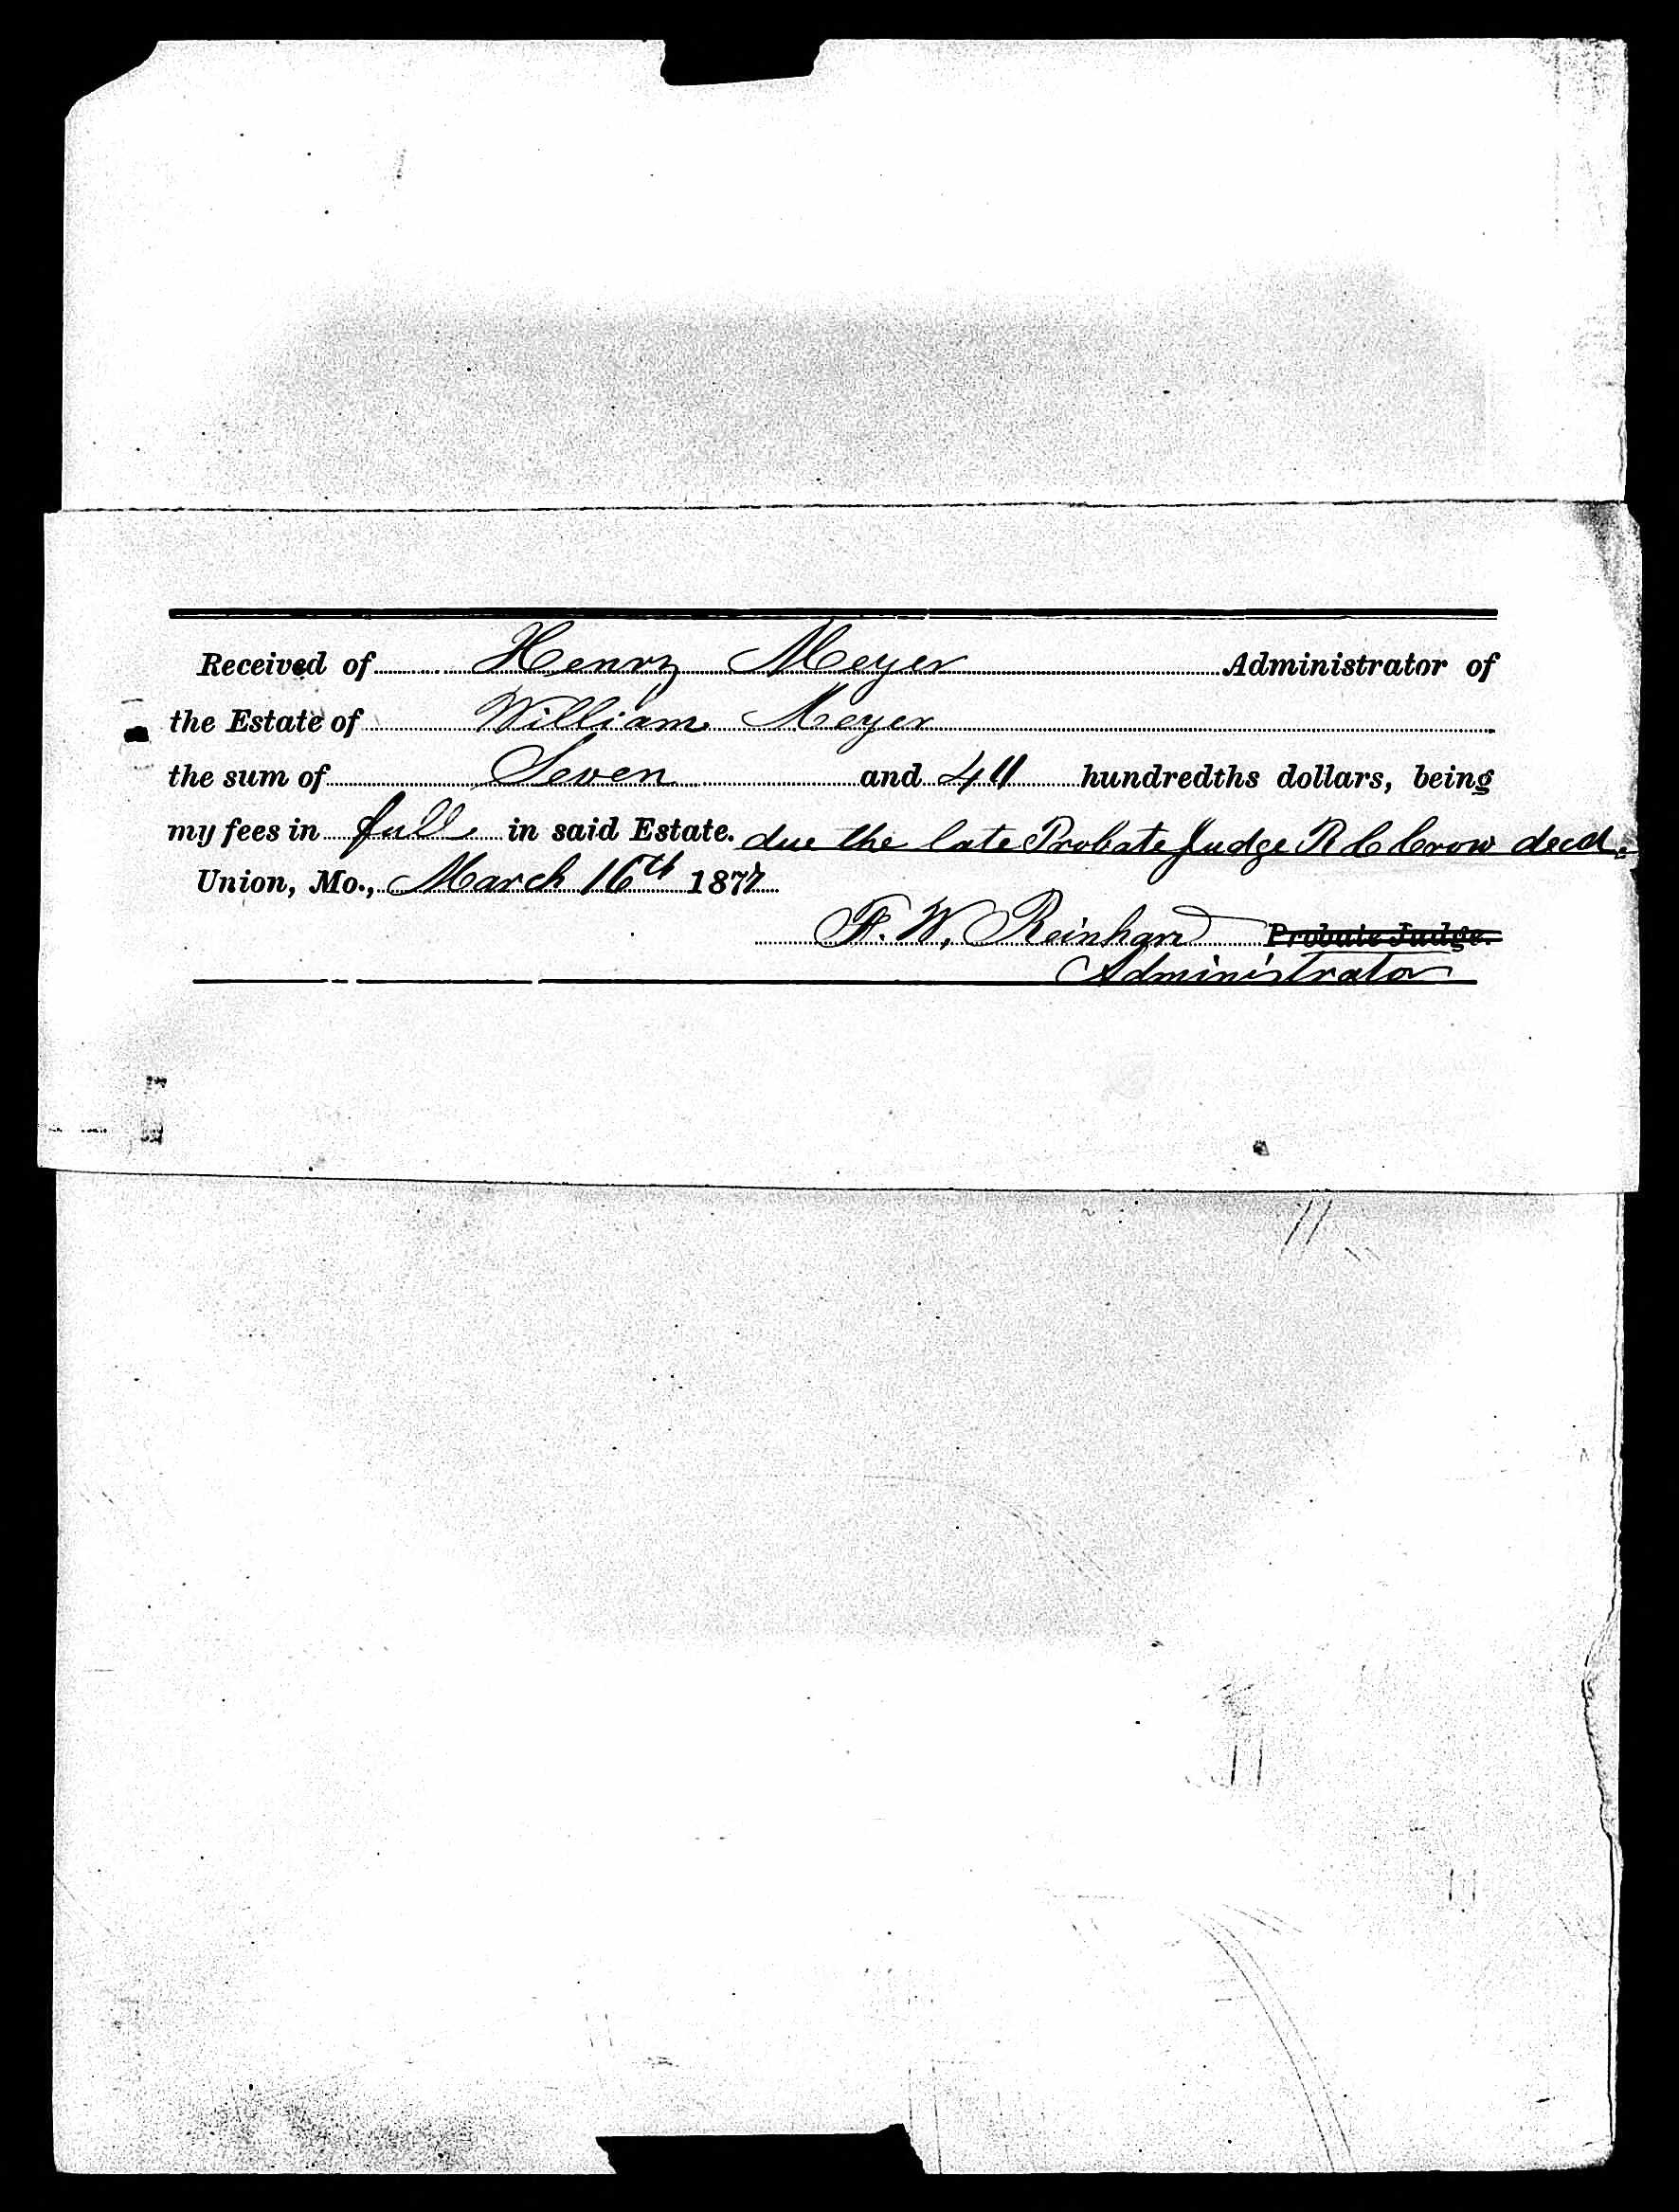 Received of Henry Meyer Administrator of
the Estate of William Meyer
the sum of Seven and 40 hundredths dollars, being
my fees in full in said Estate. due the late Probate Judge R C Crow decd.
Union, Mo., March 16th 1877
F. W. Reinhard Probate Judge.
Administrator